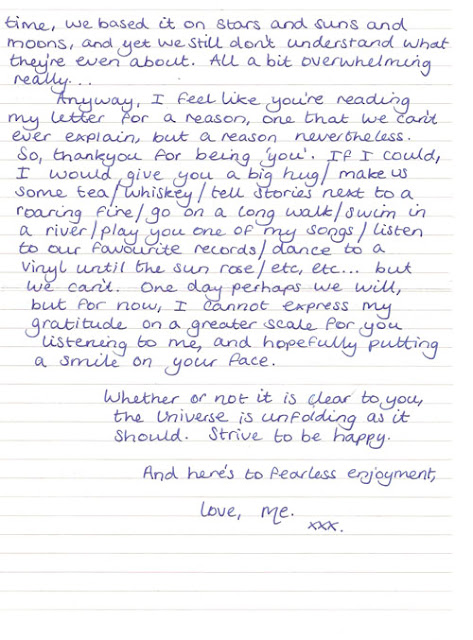 time, we based it on stars and suns and
moons, and yet we still don't understand what
they're even about. All a bit overwhelming
really...
Anyway, I feel like you're reading
my letter for a reason, one that we can't
ever explain, but a reason nevertheless.
So, thankyou for being 'you'. If I could,
I would give you a big hug/make us
some tea/whiskey/tell stories next to a
roaring fire/go on a long walk/swim in
a river/play you one of my songs/listen
to our favourite records/dance to a
vinyl until the sun rose/etc, etc... but
we can't. One day perhaps we will,
but for now, I cannot express my
gratitude on a greater scale for you
listening to me, and hopefully putting
a smile on your face.
Whether or not it is clear to you,
the Universe is unfolding as it
should. Strive to be happy.
And here's to fearless enjoyment,
love, me.
xxx.